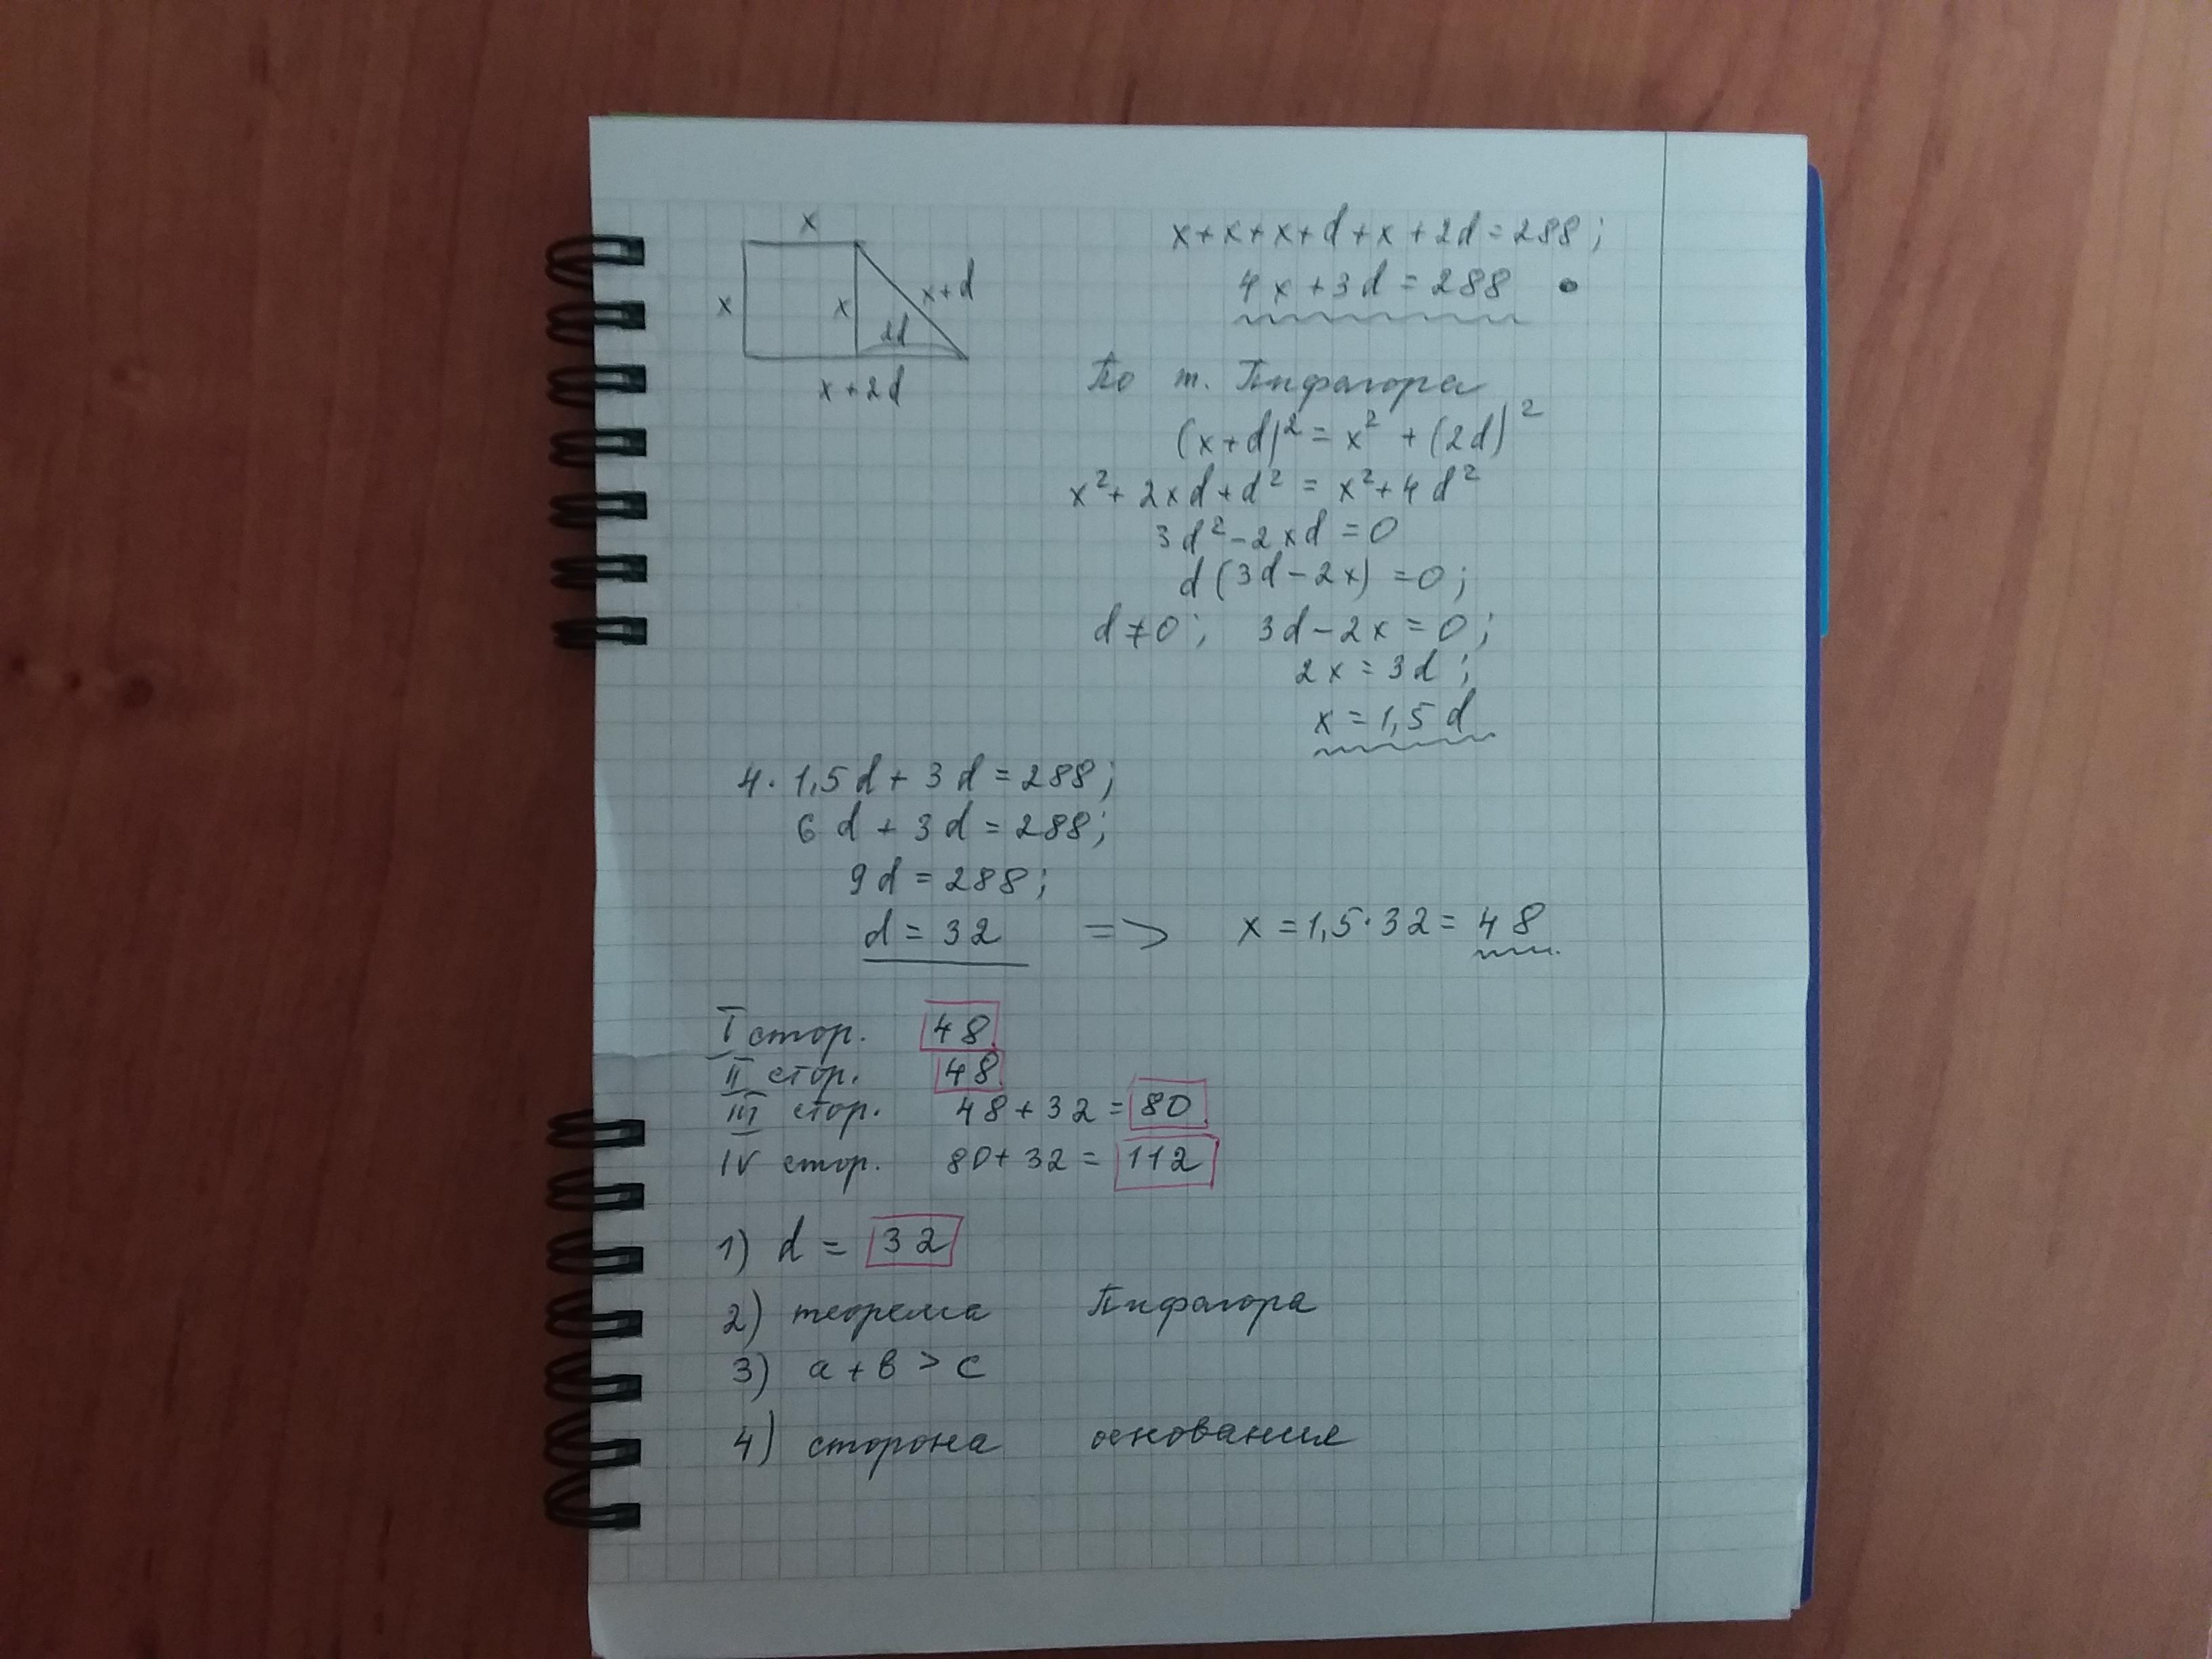 x
x
x
x+d
2d
x+2d
x+x+x+d+x+2d=288;
4x+3d=288
По т. Пифагора
(x+d)²=x²+(2d)²
x²+2xd+d²=x²+4d²
3d²-2xd=0
d(3d-2x)=0;
d≠0; 3d-2x=0;
2x=3d;
x=1,5d
4·1,5d+3d=288;
6d+3d=288;
9d=288;
d=32 => x=1,5·32=48
I стор. 48
II стор. 48
III стор. 48+32=80
IV стор. 80+32=112
1) d=32
2) теорема Пифагора
3) а+в>с
4) сторона основания